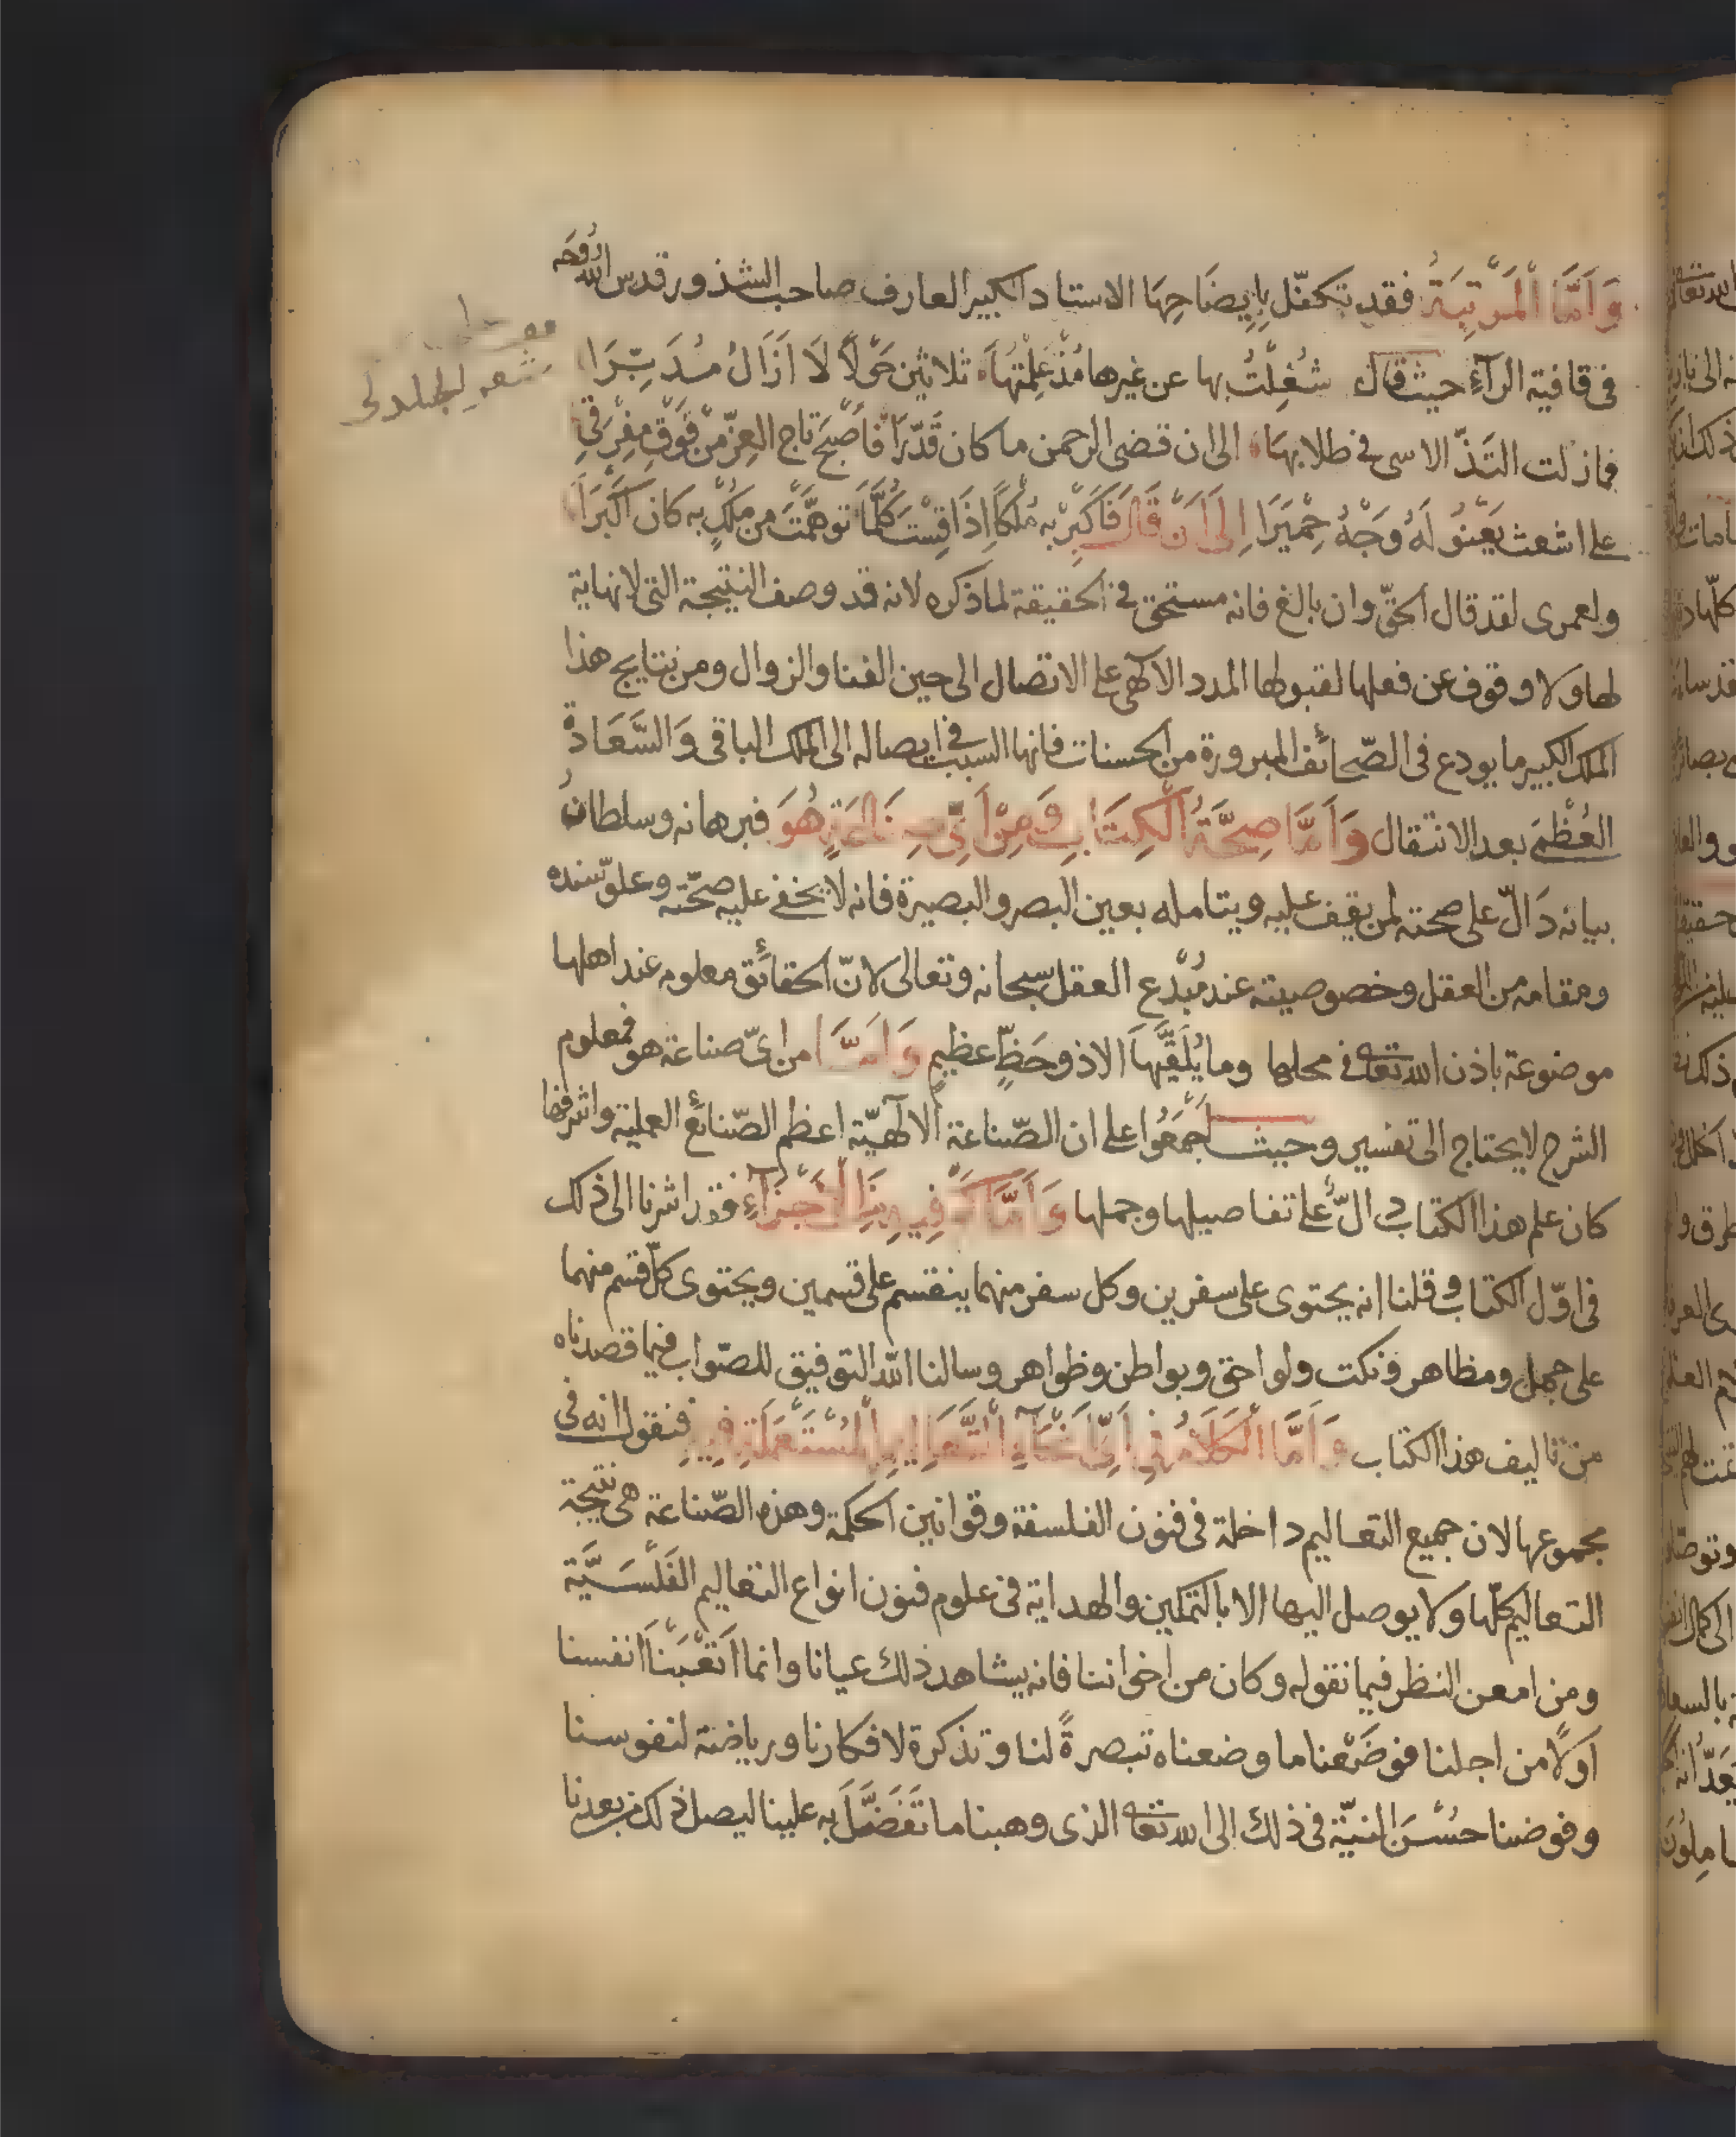 وَاَمَّا اْلمَرْتِبَةُ فقد تكفّل بِاِيضَاحِهَا الاستاد الكبير العارف صاحب الشذور قدس الله رُوحَه
فى قافية الرآءِ حيث قال شُغِلْتُ بها عن غيرها مُنْذُ عَلِمْتُهَا ثلاثين حَوْلًا لَا اَزَالُ مُدَبِّرَا
فمازلت التَذّ الاسى فى طلابهَا الى ان قضى الرحمن ما كان قَدَّرَا فَاَصْبَحَ تاج العِزّ مِنْ فَوْقِ مِفْرَقِى
على اشعث يَعْنُو لَهُ وَجْهُ حِمْيَرَا اِلَى اَنْ قَالَ فَاَكْبِرْ بِه مُلْكًا اِذَا قِسْتَ كُلَّمَا توهَّمْتَ من مُلْكٍ به كان اَكْبَرَا
ولعمرى لقد قال الحقّ وان بالغ فانه مستحق فى الحقيقة لما ذكره لانه قد وصف النتيجة التى لا نهاية
لها ولا وقوف عن فعلها لقبولها المدد الآلهى على الاتصال الى حين الفنا والزوال ومن نتايج هذا
الملك الكبير ما يودع فى الصّحائف المبرورة من الحسنات فانها السبب فى ايصاله الى الملك الباقى وَالسَّعَادة
العُظْمَى بعد الانتقال وَاَمَّا صِحَّةُ الْكِتَابِ وَمِنْ اَىِّ صِنَاعَةٍ هُوَ فبرهانه وسلطانُ
بيانه دَالّ على صحته لمن يقف عليه ويتامله بعين البصر والبصيرة فانه لا يخفى عليه صحّته وعلوّ سنده
ومقامه من العقل وخصوصيته عند مُبْدع العقل سبحانه وتعالى لانّ الحقائق معلومه عند اهلها
موضوعة باذن الله تعالى فى محلها وما يُلَقَّيهَا الا ذو حَظٍّ عظيمٍ وَاَمَّا من اىّ صناعة هو فمعلوم
الشرح لا يحتاج الى تفسير وحيث اَجْمَعُوا على ان الصّناعة الآلهيّة اعظم الصّنائع العملية واشرفها
كان علم هذا الكتاب دالّ على تفاصيلها وجملها وَاَمَّا كَمْ فِيهِ مِنَ الْاَجْزَآءِ فقد اشرنا الى ذلك
فى اوّل الكتاب وقلنا انه يحتوى على سفرين وكل سفر منهما ينقسم على قسمين ويحتوى كلّ قسم منهما
على جمل ومظاهر ونكت ولواحق وبواطن وظواهر وسالنا الله التوفيق للصّواب فيما قصدناه
من تاليف هذا الكتاب وَاَمَّا الْكَلَامُ فِى اَىِّ اَنْحَاءِ التَّعَالِيمِ الْمُسْتَعْمَلَةِ فِيهِ فنقول انه فى
مجموعها لان جميع التعاليم داخلة فى فنون الفلسفة وقوانين الحكمة وهذه الصّناعة هى نتيجة
التعاليم كلّها ولا يوصل اليها الا بالتمكين والهداية فى علوم فنون انواع التعاليم الفَلْسَفيَّة
ومن امعن النظر فيما نقوله وكان من اخواننا فانه يشاهد ذلك عيانا وانما اَتْعَبْنَا انفسنا
اولًا من اجلنا فوضَعْنا ما وضعناه تبصرةً لنا وتذكرة لافكارنا ورياضة لنفوسنا
وفوضنا حُسْنَ النيّة فى ذلك الى الله تعالى الذى وهبنا ما تَفَضَّلَ به علينا ليصل ذلك من بعدنا
شعر الجلدكى